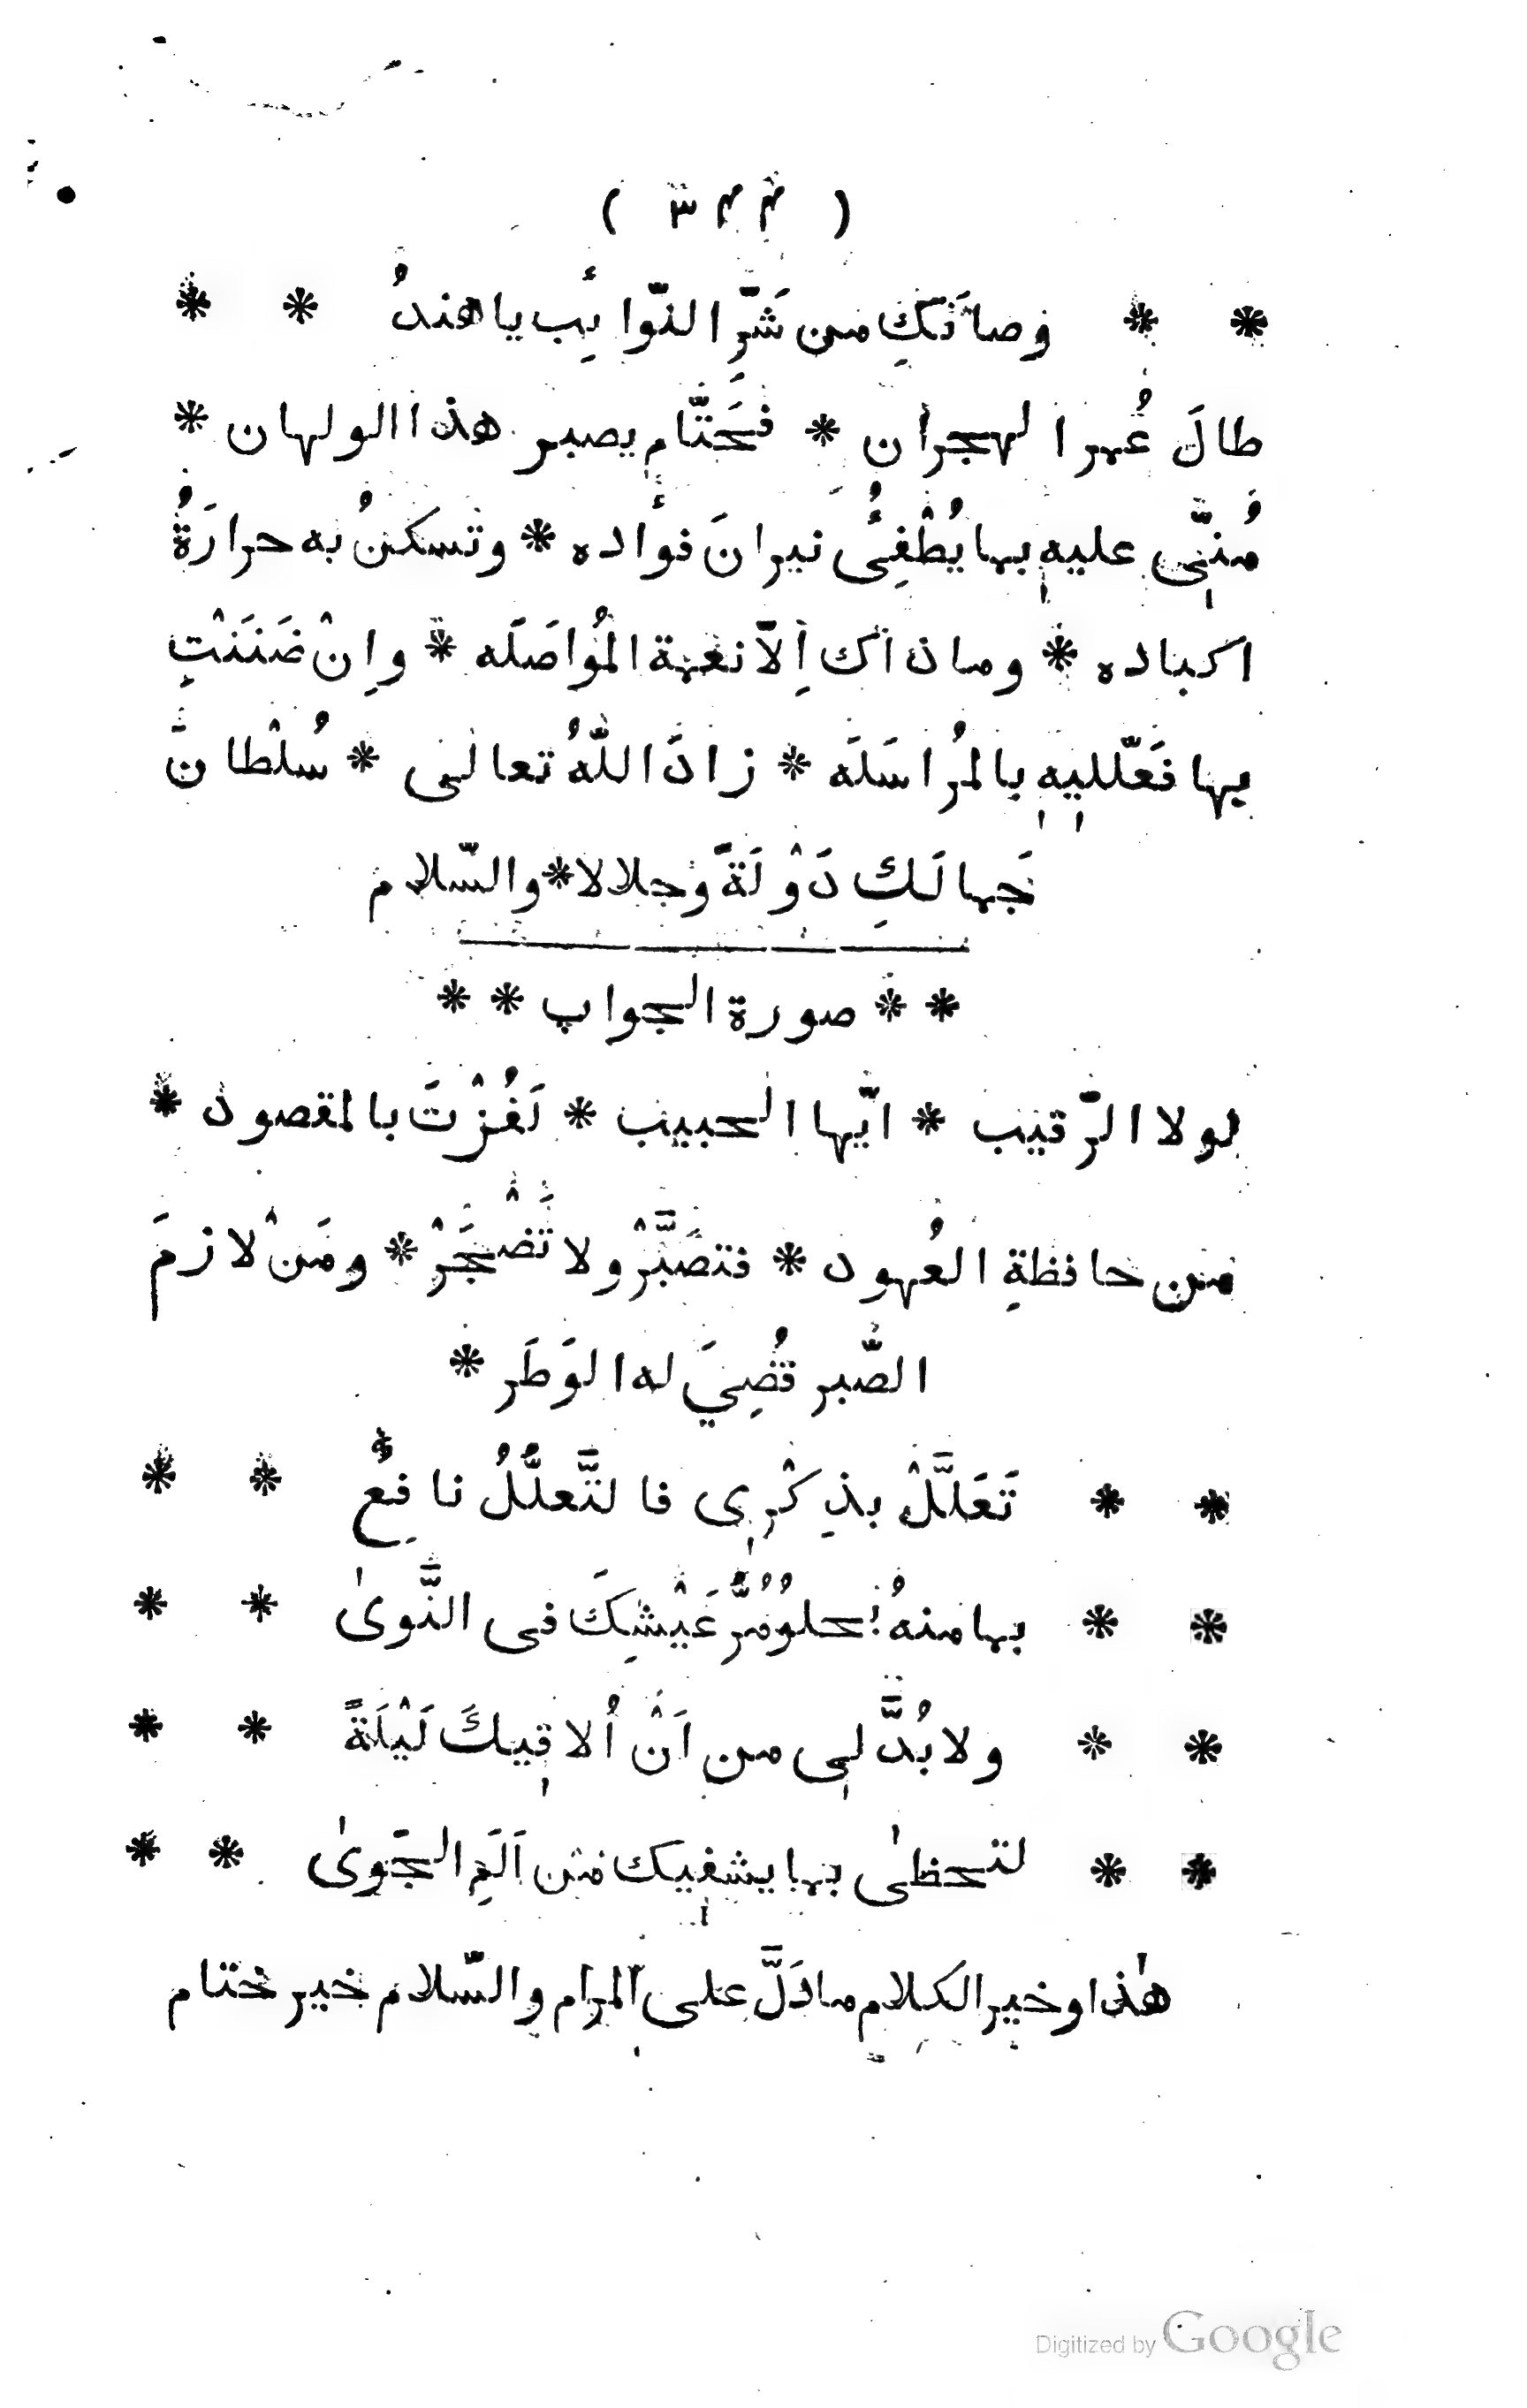 ( ٣٤٤ )
* * وصانَكِ من شَرِّ النّوائِب يا هندُ * *
طالَ عُمر الهجران * فَحَتّامَ يصبر هذا الولهان *
مُنِّى عليه بها يُطْفِئُ نيرانَ فؤاده * وتسكنُ به حرارَةُ
اكباده * وما ذاك اِلّا نعمة المُواصَلَه * واِنْ ضَنَنْتِ
بها فَعَلّليه بالمُراسَلَه * زادَ اللّهُ تعالى * سُلْطانَ
جَمالَكِ دَوْلَةً وجلالا * والسّلام
* * صورة الجواب * *
لولا الرّقيب * ايّها الحبيب * لَفُزْتَ بالمقصود *
من حافظةِ العُهود * فتصَبَّرْ ولا تَضْجَرْ * ومَنْ لازمَ
الصّبر قُضِيَ له الوَطَر *
* * تَعَلَّلْ بذِكْرى فالتَّعلُّلُ نافِعٌ * *
* * بها منهُ يحلو مُرُّ عَيْشِكَ فى النَّوىٰ * *
* * ولا بُدَّ لى من اَنْ اُلاقيكَ لَيْلَةً * *
* * لتحظىٰ بما يشفيك من اَلَمِ الجَوىٰ * *
هٰذا وخير الكلام ما دَلَّ على المرام والسّلام خير ختام
Digitized by Google